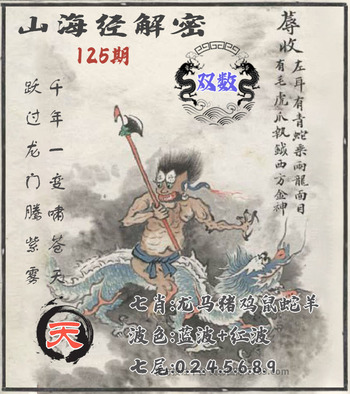 山海经解密
125期
双数
蓐收
左耳有青蛇乘兩龍面目
有毛虎爪執鉞西方金神
千年一变啸苍天
跃过龙门腾紫雾
天
七肖:龙马猪鸡鼠蛇羊
波色:蓝波+红波
七尾:0.2.4.5.6.8.9